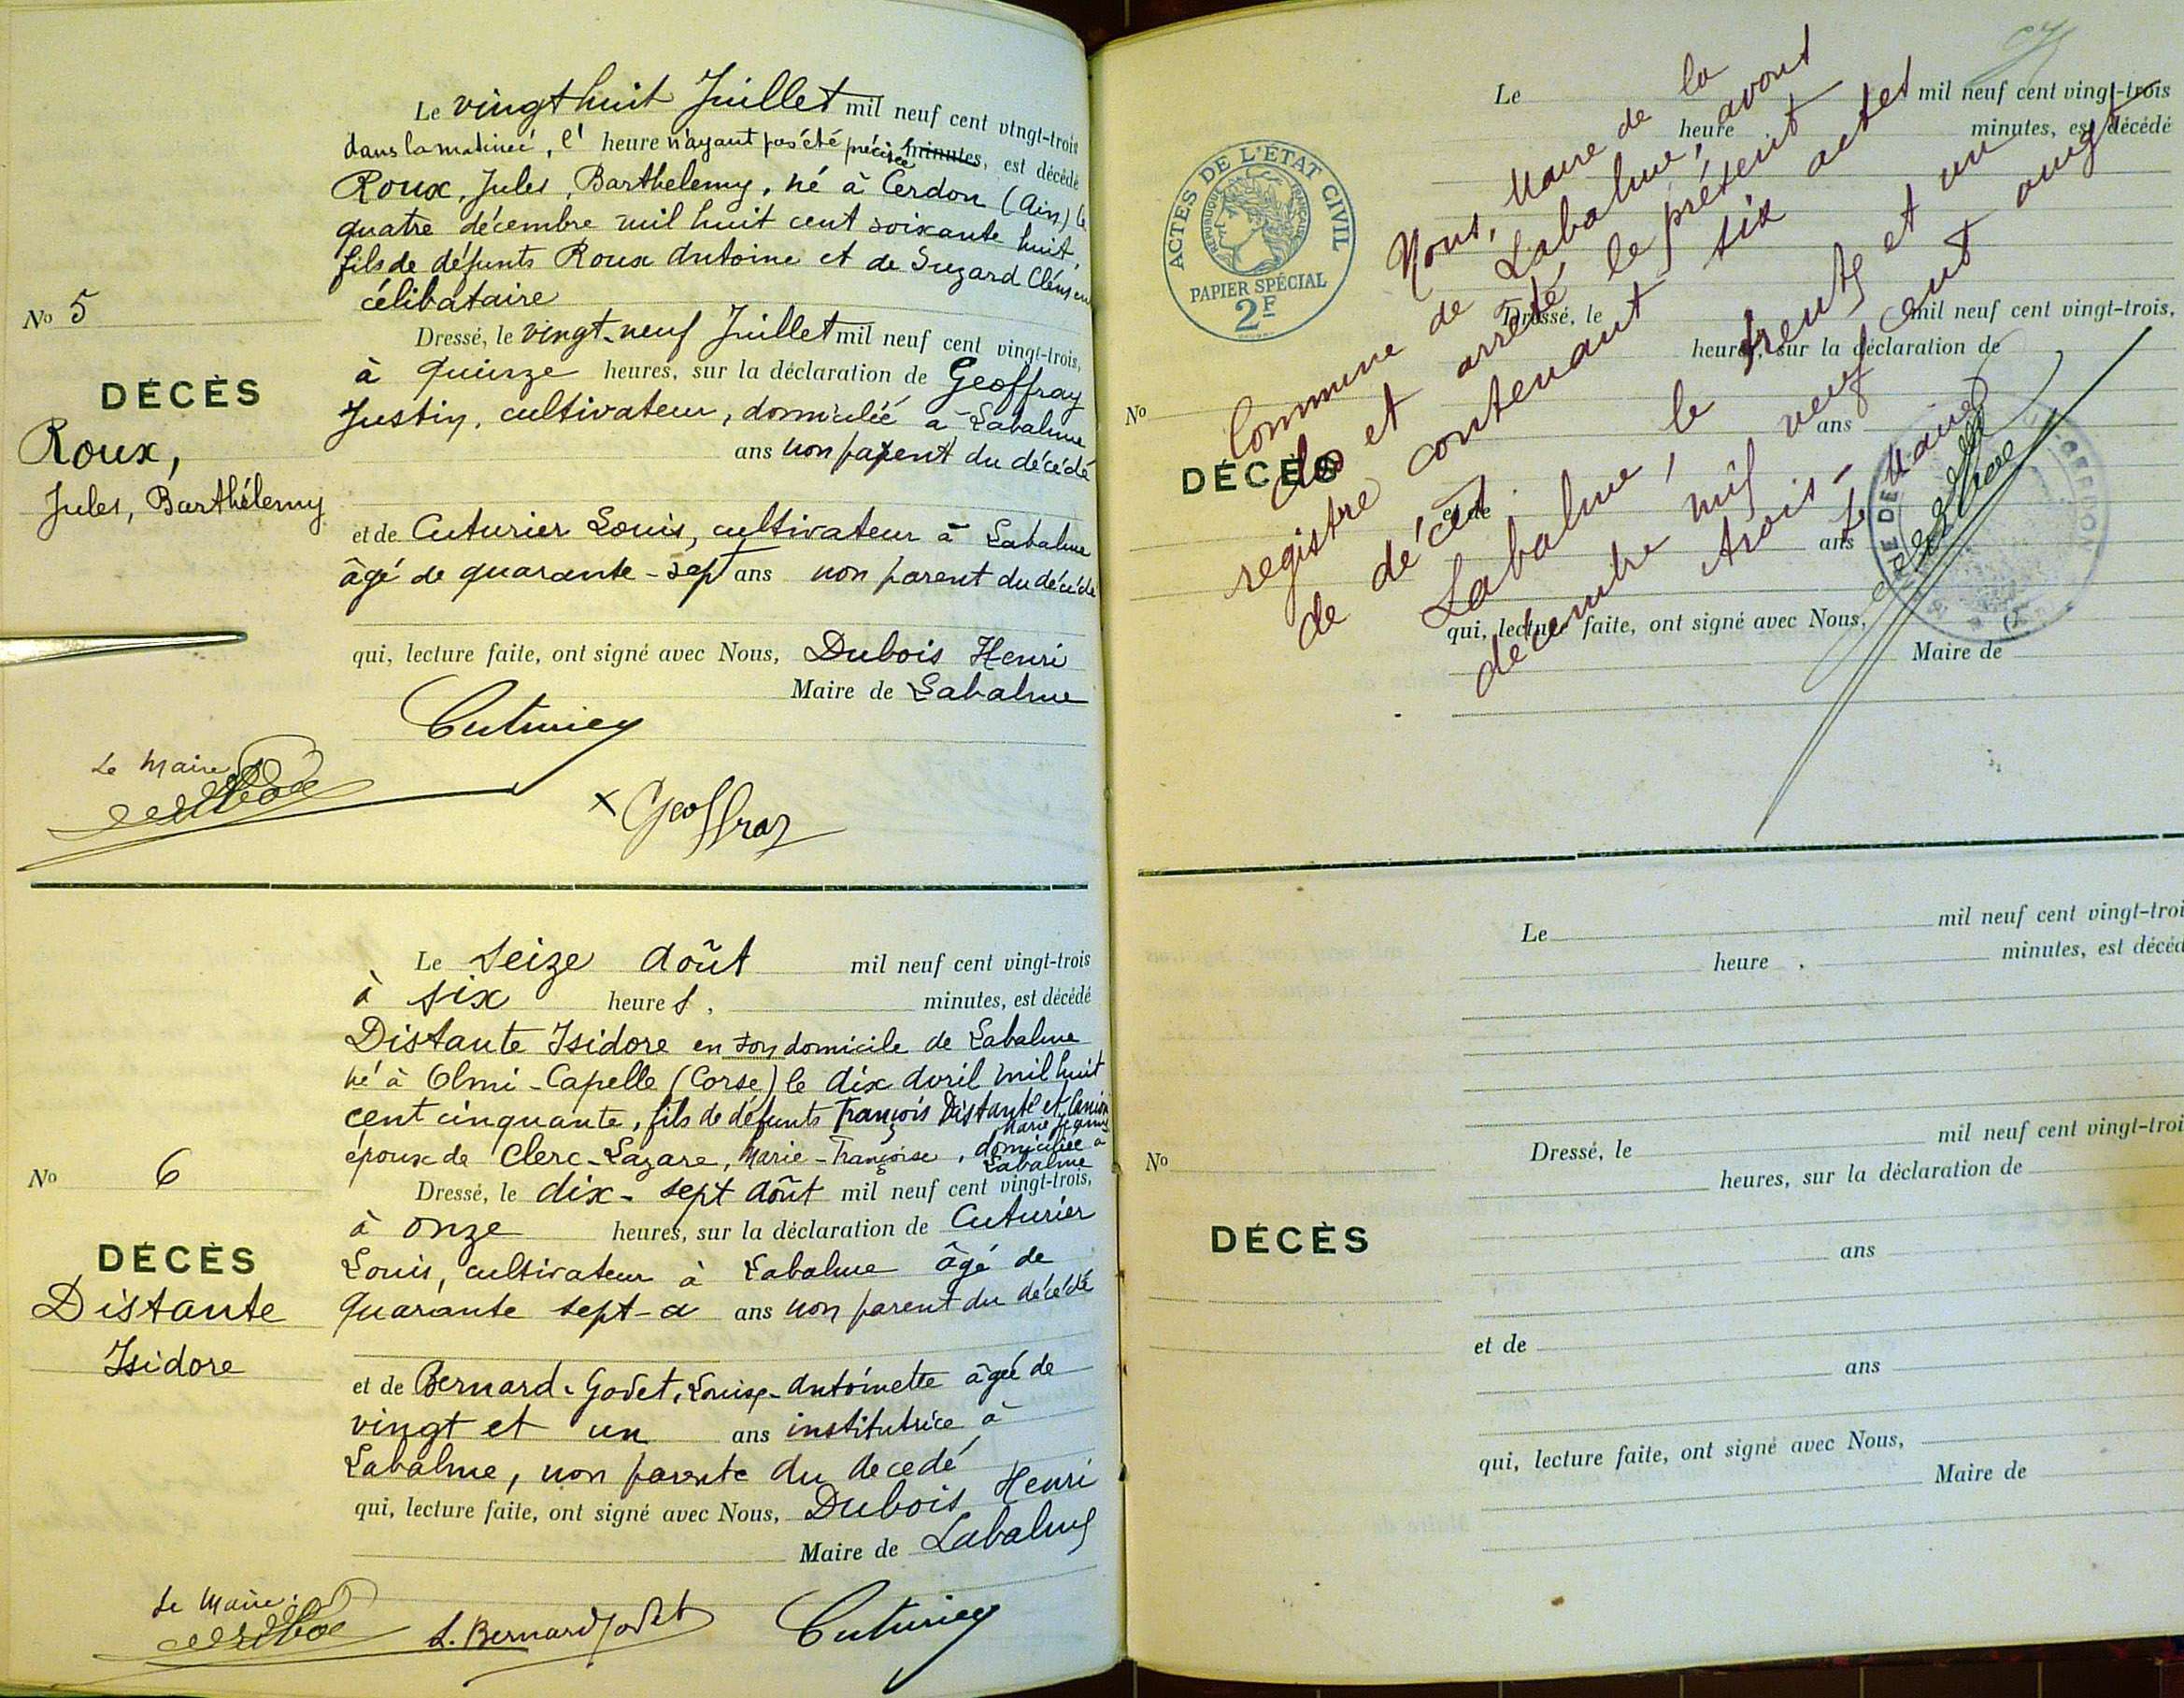 Le vingt huit Juillet mil neuf cent vingt-trois
dans la matinée, l' heure n'ayant pas été précisée minutes, est décédé
Roux, Jules, Barthelemy, né à Cerdon (Ain) le
quatre décembre mil huit cent soixante huit,
fils de défunts Roux Antoine et de Suzard
célibataire
No 5
DÉCÈS
Roux,
Jules, Barthélemy
Dressé, le vingt-neuf Juillet mil neuf cent vingt-trois,
à quinze heures, sur la déclaration de Geoffray
Justin, cultivateur, domicilié à Labalme
ans non parent du décédé
et de Cuturier Louis, cultivateur à Labalme
âgé de quarante-sept ans non parent du décédé
qui, lecture faite, ont signé avec Nous, Dubois Henri
Maire de Labalme
Cuturier
Le Maire
x Geoffray
Le seize Août mil neuf cent vingt-trois
à six heures, minutes, est décédé
Distante Isidore en son domicile de Labalme
né à Olmi-Capelle (Corse) le dix Avril mil huit
cent cinquante, fils de défunts François Distante et
époux de Clerc-Lazare, Marie-Françoise, domiciliée à
Labalme
No 6
DÉCÈS
Distante
Isidore
Dressé, le dix-sept Août mil neuf cent vingt-trois,
à onze heures, sur la déclaration de Cuturier
Louis, cultivateur à Labalme âgé de
quarante sept-a ans non parent du décédé
et de Bernard-Godet, Louise-Antoinette âgée de
vingt et un ans institutrice à
Labalme, non parente du decedé
qui, lecture faite, ont signé avec Nous, Dubois Henri
Maire de Labalme
Le Maire:
L. Bernard Godet
Cuturier
ACTES DE L'ÉTAT CIVIL
RÉPUBLIQUE FRANÇAISE
PAPIER SPÉCIAL
2F
Nous, Maire de la
Commune de Labalme, avons
clos et arrêté le présent
registre contenant six actes
de décès.
Labalme, le trente et un
décembre mil neuf cent vingt
trois-
Le Maire
Le mil neuf cent vingt-trois
heure minutes, est décédé
Dressé, le mil neuf cent vingt-trois,
heures, sur la déclaration de
No
DÉCÈS
ans
et de
ans
qui, lecture faite, ont signé avec Nous,
Maire de
Le mil neuf cent vingt-troi
heure , minutes, est décéd
Dressé, le mil neuf cent vingt-troi
heures, sur la déclaration de
No
DÉCÈS
ans
et de
ans
qui, lecture faite, ont signé avec Nous,
Maire de